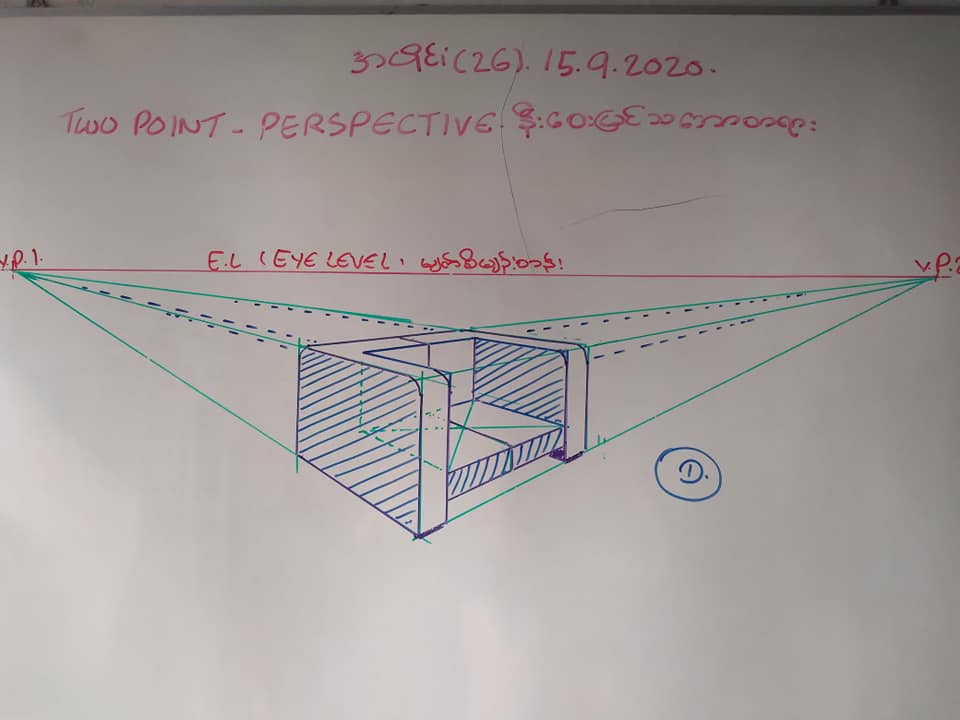 အပိုင်း(26). 15.9.2020.
TWO POINT - PERSPECTIVE. နီးဝေးမြင်သဘောတရား
V.P.1. E.L (EYE LEVEL, မျက်စိမျဉ်းတန်း) V.P.2
①.